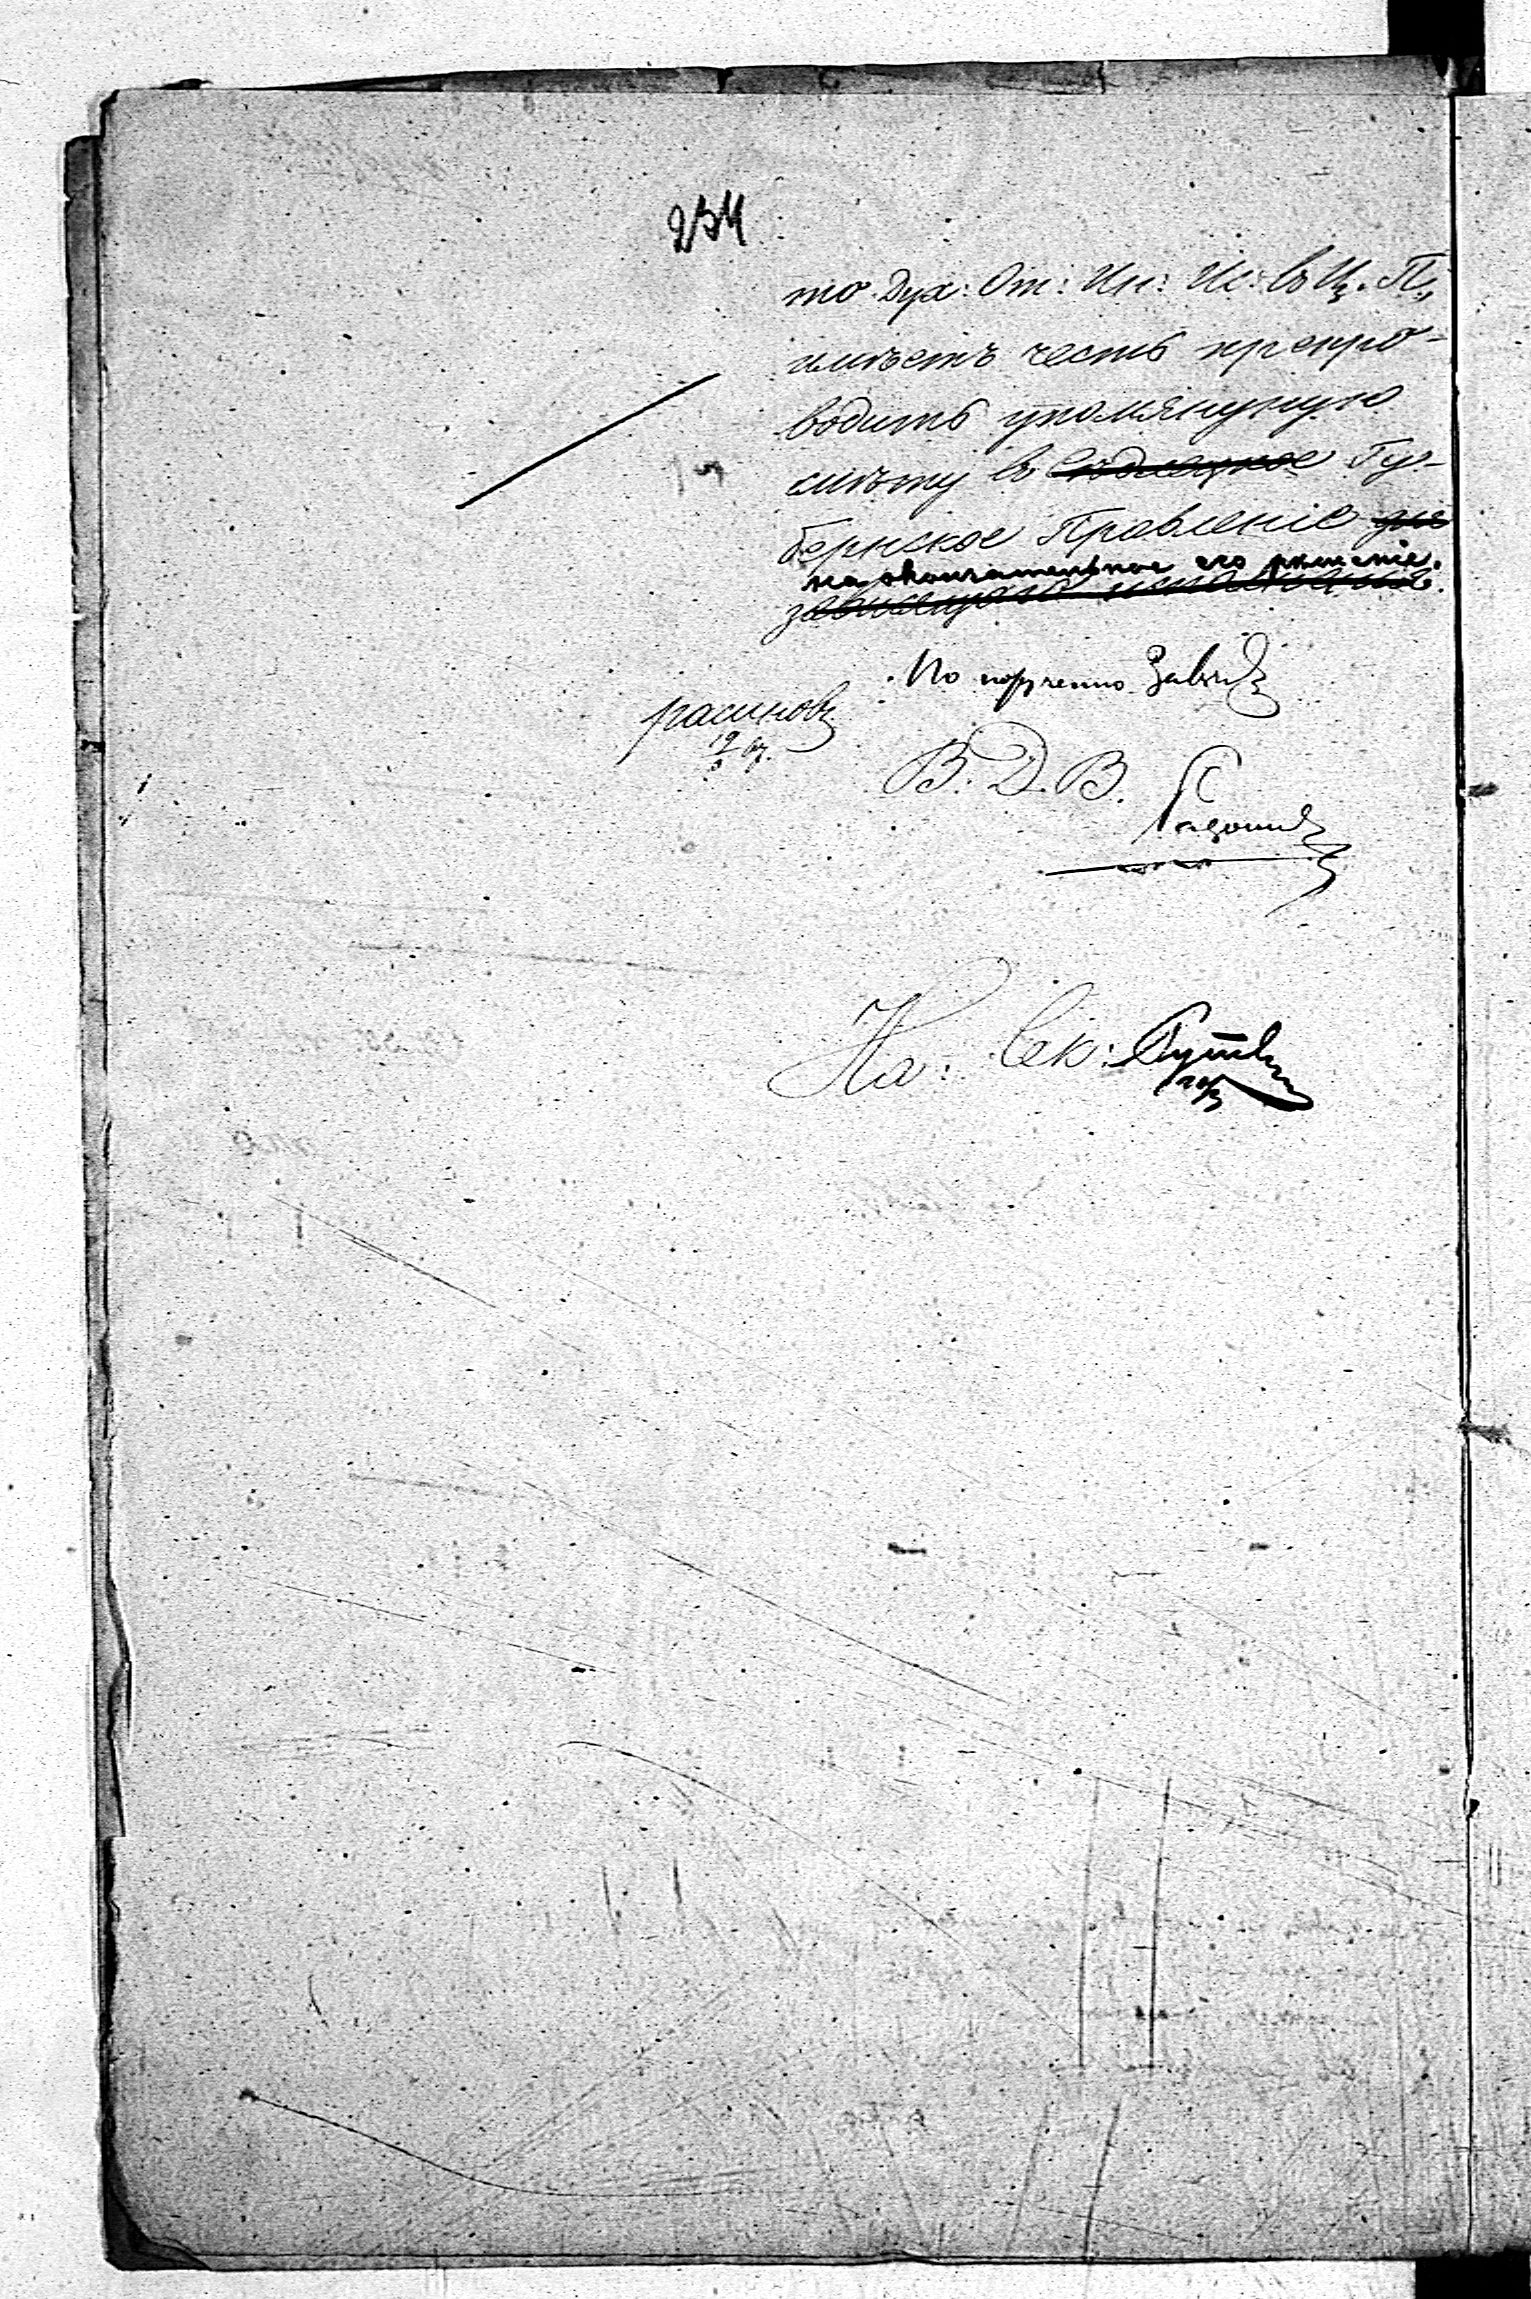 234
то Дух: От: Ин: Ис: въ Ц. П.,
имѣетъ честь препро-
водить упомянутую
смѣту въ Сѣдлецкое Гу-
бернское Правленіе для
на окончательное его рѣшеніе.
зависящаго
По порученію
В. Д. В.
На: Сек: